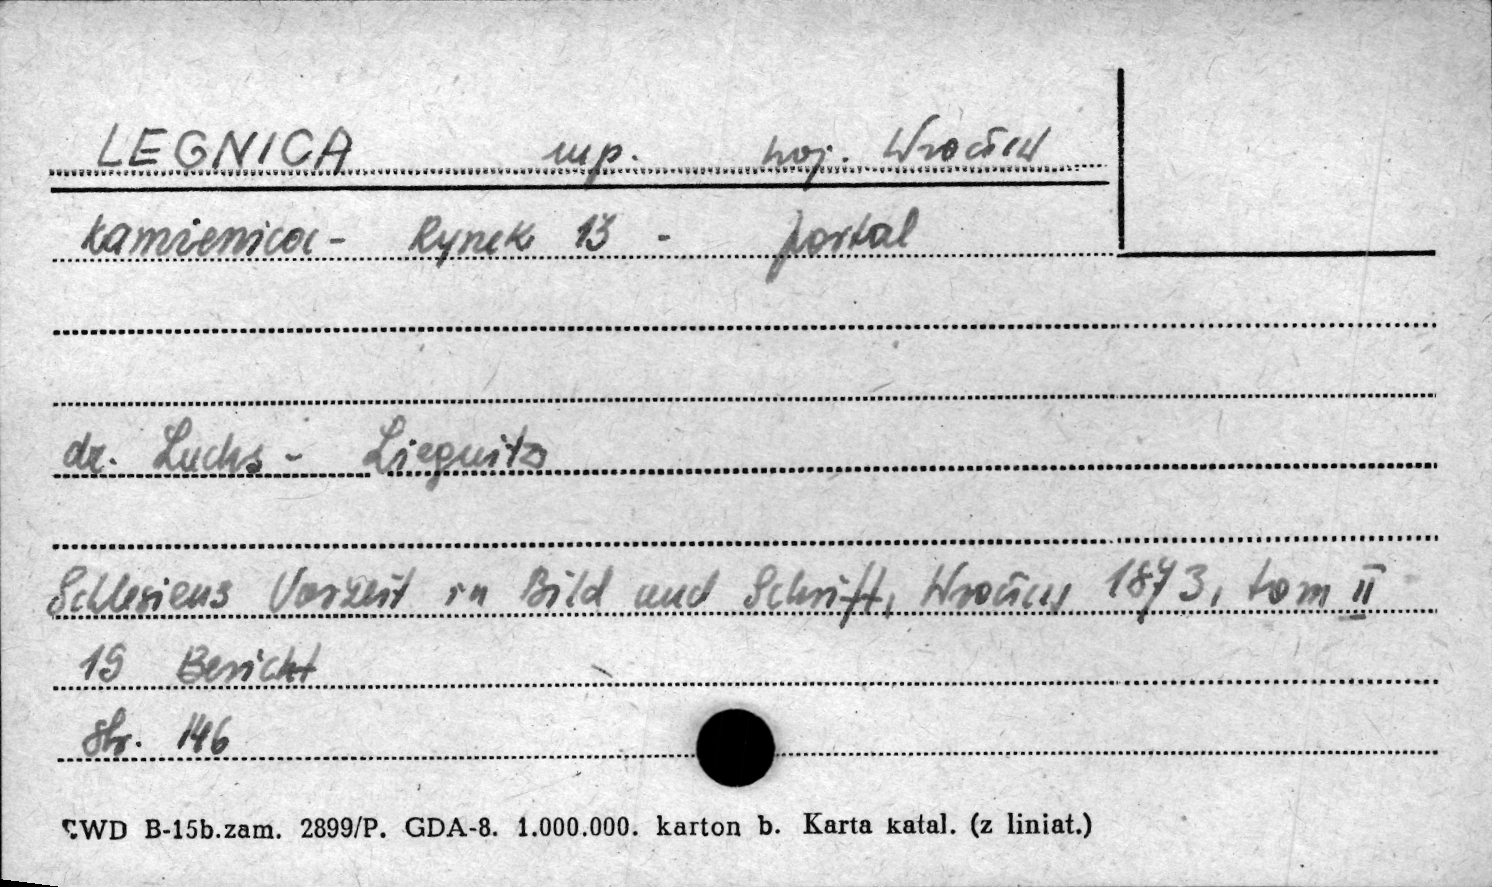 LEGNICA mp. woj. Wrocław
kamienica - Rynek 13 - portal
dr. Luchs - Liegnitz
Schlesiens Vorzeit in Bild und Schrift, Wrocław 1873, tom II
19 Bericht
Str. 146
CWD B-15b.zam. 2899/P. GDA-8. 1.000.000. karton b. Karta katal. (z liniat.)